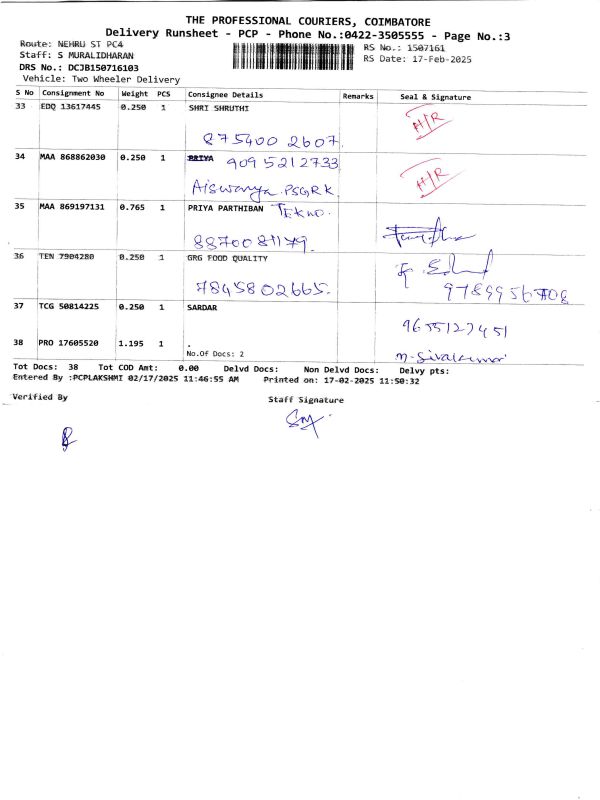 THE PROFESSIONAL COURIERS, COIMBATORE
Delivery Runsheet - PCP - Phone No.:0422-3505555 - Page No.:3
Route: NEHRU ST PC4 RS No.: 1507161
Staff: S MURALIDHARAN RS Date: 17-Feb-2025
DRS No.: DCJB150716103
Vehicle: Two Wheeler Delivery
S No Consignment No Weight PCS Consignee Details Remarks Seal & Signature
33 EDQ 13617445 0.250 1 SHRI SHRUTHI H/R
875400 2607
34 MAA 868862030 0.250 1 PRIYA 9095212733 H/R
Aiswarya. PSGRK
35 MAA 869197131 0.765 1 PRIYA PARTHIBAN
8870081179.
36 TEN 7904280 0.250 1 GRG FOOD QUALITY
7845802665.
37 TCG 50814225 0.250 1 SARDAR
9655127451
38 PRO 17605520 1.195 1 .
No.Of Docs: 2 n. Sivakumar
Tot Docs: 38 Tot COD Amt: 0.00 Delvd Docs: Non Delvd Docs: Delvy pts:
Entered By :PCPLAKSHMI 02/17/2025 11:46:55 AM Printed on: 17-02-2025 11:50:32
Verified By Staff Signature